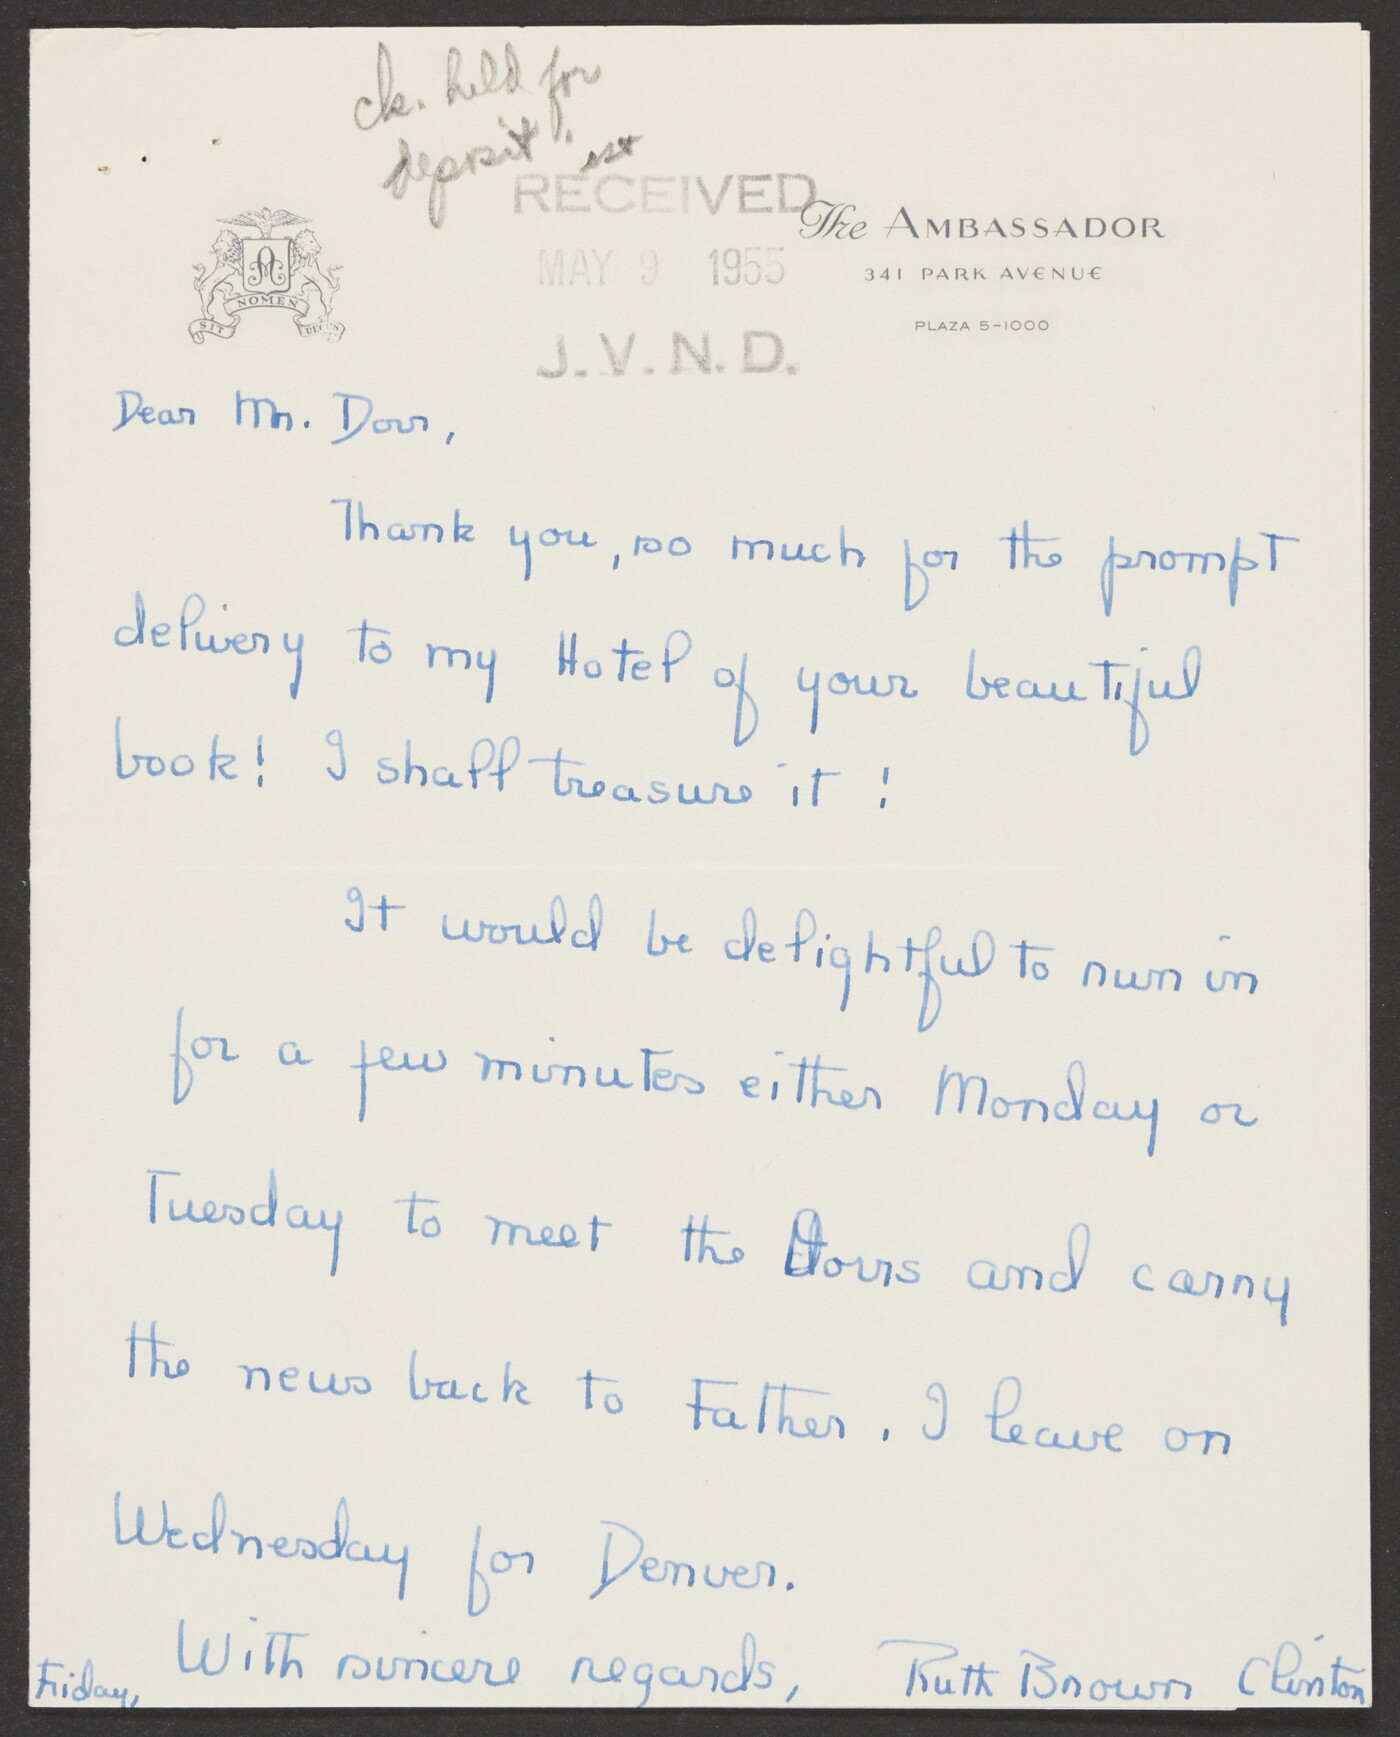 ck. held for
deposit.
RECEIVED
MAY 9 1955
J.V.N.D.
The AMBASSADOR
341 PARK AVENUE
PLAZA 5-1000
SIT NOMEN DECUS
Dear Mr. Dorr,
Thank you, so much for the prompt
delivery to my Hotel of your beautiful
book! I shall treasure it!
It would be delightful to run in
for a few minutes either Monday or
Tuesday to meet the Dorrs and carry
the news back to Father. I leave on
Wednesday for Denver.
With sincere regards, Ruth Brown Clinton
Friday,